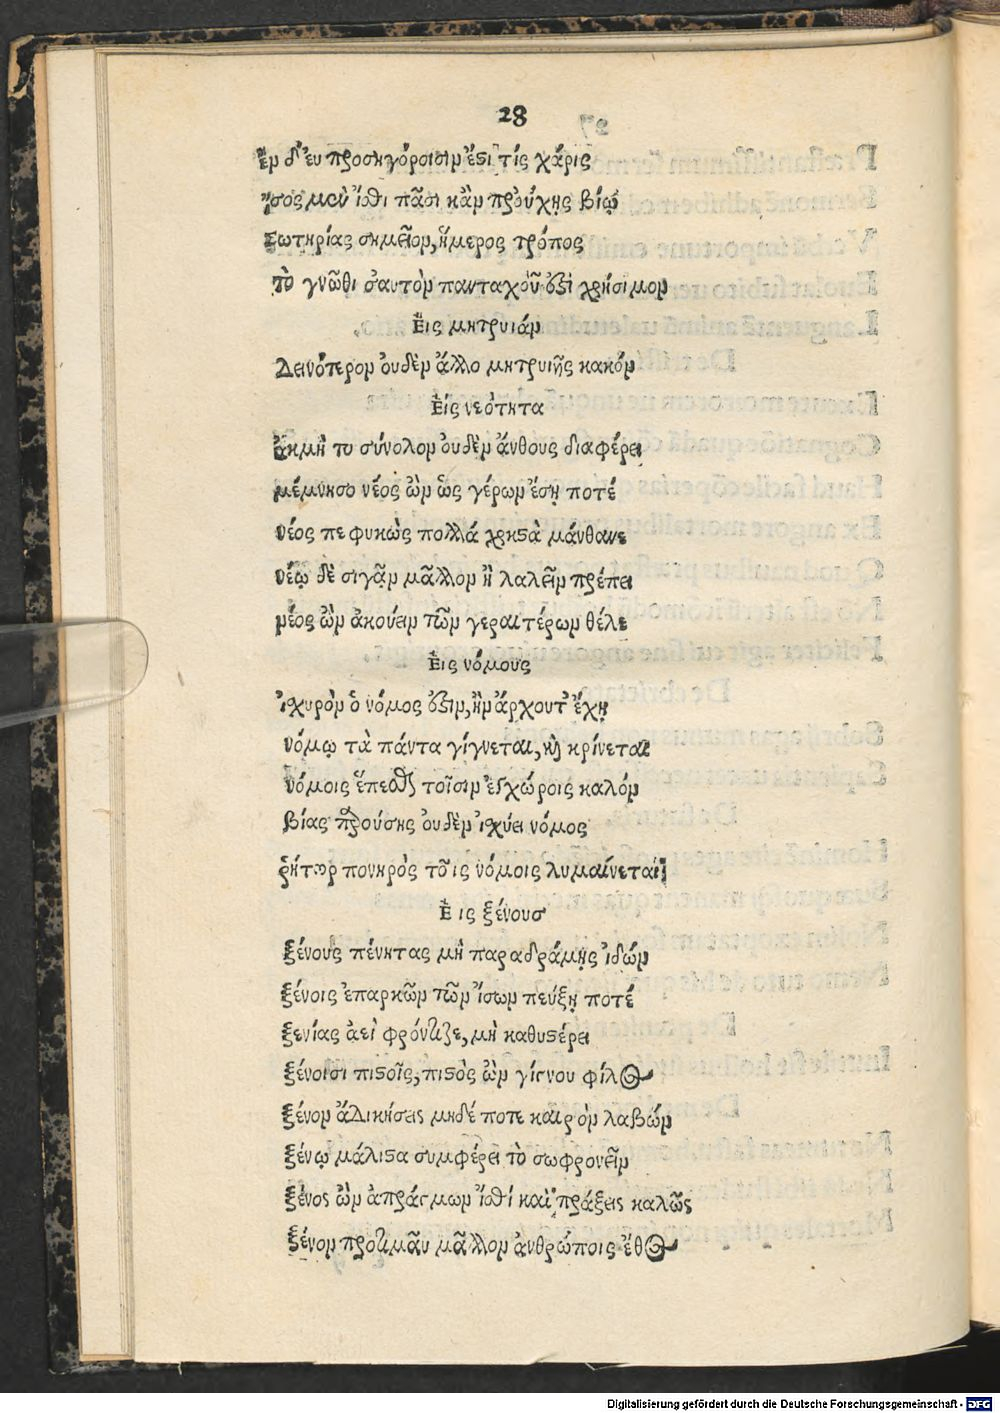 28
ἓν δ' ευ προσηγόροισιν ἐστι τίς χάρις
ἴσος μεν ἴσθι πᾶσι κἂν προύχης βίῳ
σωτηρίας σημεῖον, ἥμερος τρόπος
τὸ γνῶθι σαυτὸν πανταχοῦ ἐστι χρήσιμον
Εἰς μητρυιάν
Δεινότερον ουδὲν ἄλλο μητρυιῆς κακόν
Εἰς νεότητα
ἀκμὴ το σύνολον ουδὲν ἄνθους διαφέρει
μέμνησο νέος ὢν ὡς γέρων ἔσῃ ποτέ
νέος πεφυκὼς πολλά χρηστὰ μάνθανε
νέῳ δὲ σιγᾷν μᾶλλον ἢ λαλεῖν πρέπει
νέος ὢν ἀκούειν τῶν γεραιτέρων θέλε
Εἰς νόμους
ἰσχυρὸν ὁ νόμος ἐστιν, ἢν ἄρχοντ' ἔχῃ
νόμῳ τὰ πάντα γίγνεται, καὶ κρίνεται
νόμοις ἕπεσθαι τοῖσιν ἐγχώροις καλόν
βίας προύσης ουδὲν ἰσχύει νόμος
ῥήτωρ πονηρὸς τοῖς νόμοις λυμαίνεται
Εἰς ξένους
ξένους πένητας μὴ παραδράμῃς ἰδών
ξένοις ἐπαρκῶν τῶν ἴσων τεύξῃ ποτέ
ξενίας ἀεὶ φρόντιζε, μὴ καθυστέρει
ξένοισι πιστοῖς, πιστὸς ὢν γίγνου φίλος
ξένον ἀδικήσεις μηδέ ποτε καιρὸν λαβών
ξένῳ μάλιστα συμφέρει τὸ σωφρονεῖν
ξένος ὢν ἀπράγμων ἴσθί καὶ πράξεις καλῶς
ξένον προτιμᾶν μᾶλλον ἀνθρώποις ἔθος
Digitalisierung gefördert durch die Deutsche Forschungsgemeinschaft - DFG